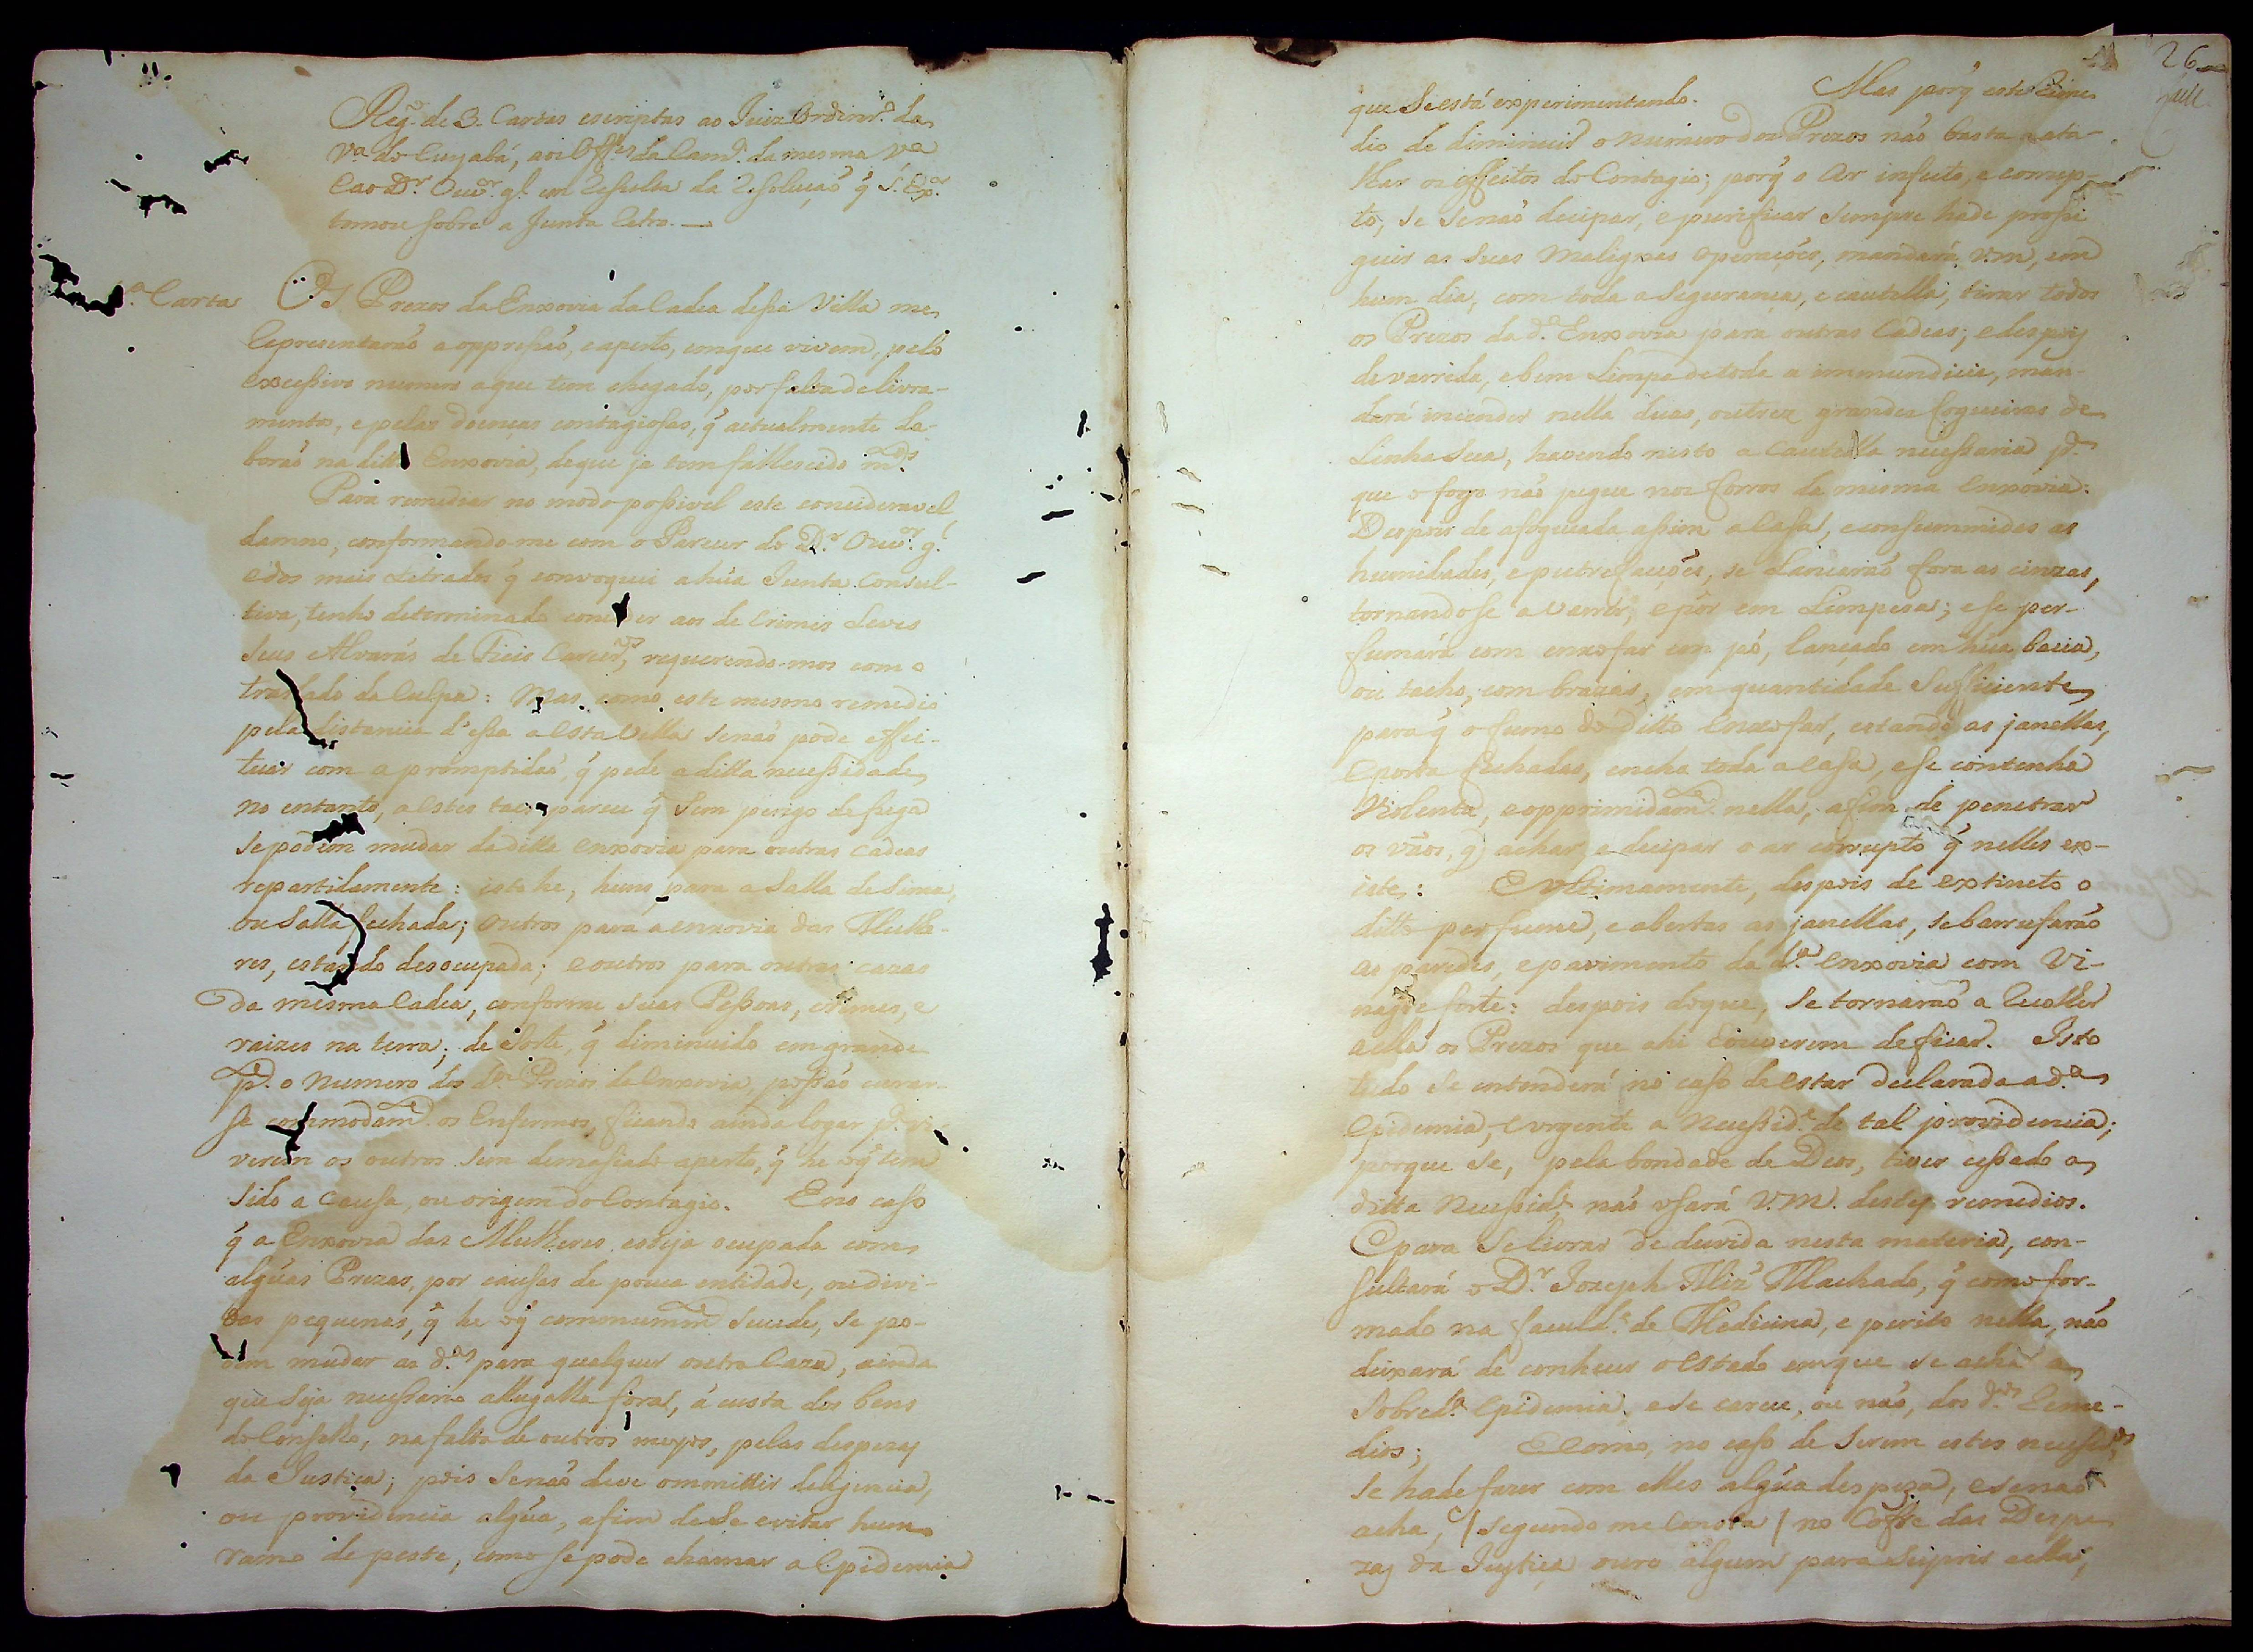 Reg.º de 3. Cartas escriptas ao Juiz Ordinr.º da
V.ª do Cuyabá, aos Off.es da Cam.ª da mesma V.ª
e ao D.r Ouv.or g.l em resulta da resoluçaõ q̃ S. Ex.ª
tomou sobre a Junta retro. —
1.ª Carta OS Prezos da Enxovia da Cadea dessa Villa me
representaraõ a oppressaõ, e aperto, em que vivem, pelo
excessivo numero a que tem chegado, por falta de livra-
mento, e pelas doenças contagiosas, q̃ actualmente la-
boraõ na ditta Enxovia, de que ja tem fallescido m.tos
Para remediar no modo possivel este consideravel
damno, conformando-me com o Parecer do D.r Ouv.or g.l
e dos mais Letrados q̃ convoquei a hũa Junta Consul-
tiva, tenho determinado conceder aos de crimes Leves
seus Alvarás de Fieis Carcer.os, requerendo-mos com o
traslado da culpa: Mas como este mesmo remedio
pela distancia d'essa a esta Villa senaõ póde effei-
tuar com a promptidaõ, q̃ pede a ditta necessidade,
no entanto, a estes taes parece q̃ sem perigo de fuga
se podem mudar da ditta enxovia para outras cadeas
repartidamente: isto he, huns para a Salla de Sima,
ou Salla fechada; outros para a enxovia das Mulhe-
res, estando desocupada; e outros para outras cazas
da mesma Cadea, conforme suas Pessoas, crimes, e
raizes na terra; de sorte, q̃ diminuido em grande
p.te o numero dos d.os Prezos da enxovia, possaõ curar-
se commodam.te os Enfermos, ficando ainda logar p.ª vi-
verem os outros sem demasiado aperto, q̃ he o q̃ tem
sido a causa, ou origem do Contagio. E no caso
q̃ a Enxovia das Mulheres esteja ocupada com
algũas Prezas, por causas de pouca entidade, ou divi-
das pequenas, q̃ he o q̃ commummte sucede, se po-
dem mudar as d.as para qualquer outra Caza, ainda
que seja necessario allugalla fora, á custa dos bens
do Conselho, na falta de outros meyos, pelas despezas
da Justiça; pois senaõ deve ommittir deligencia,
ou providencia algũa, afim de se evitar hum
ramo de peste, como se pode chamar a Epidemia
26
que se está experimentando. Mas porq̃ este reme-
dio de diminuir o numero dos Prezos naõ basta a ata-
lhar os effeitos do Contagio; porq̃ o Ar infecto, e corrup-
to, se senaõ decipar, e purificar sempre hade prosse
guir as suas malignas operaçoẽs, mandará V.m, em
hum dia, com toda a segurança, e cautella, tirar todos
os Prezos da d.ª Enxovia para outras Cadeas; e despois
de varrida, e bem Limpa de toda a immundicie, man-
dará incender nella duas, ou trez grandes fogueiras de
Lenha seca, havendo nisto a cautella necessaria p.ª
que o fogo naõ pegue nos forros da mesma enxovia:
Despois de afogueada assim a casa, e consummidas as
humidades, e putrefacçoẽs, se Lançaráõ fora as cinzas,
tornandose a varrer, e pôr em Limpeza; e se per-
fumará com enxofar em pó, lançado em hũa bacia,
ou tacho, com brazas, em quantidade sufficiente,
para q̃ o fumo do ditto enxofar, estando as janellas,
e porta fechadas, encha toda a casa, e se contenha
violenta, e opprimidam.te nella, afim de penetrar
os vãos, q̃ achar, e decipar o ar corrupto q̃ nelles ex-
iste: E ultimamente, despois de extincto o
ditto perfume, e abertas as janellas, se barrufaraõ
as paredes, e pavimento da d.ª enxovia com Vi-
nagre forte: despois do que, se tornaraõ a recolher
a ella os Prezos que ahi houverem de ficar. Isto
tudo se entenderá no caso de estar declarada a d.ª
Epidemia, e urgente a necessid.e de tal providencia;
porque se, pela bondade de Deos, tiver cessado a
ditta necessid.e naõ usará V.M. destes remedios.
E para se livrar de duvida nesta materia, con-
sultará o D.r Joseph Miz' Machado, q̃ como for-
mado na faculd.e de Medicina, e perito nella, naõ
deixará de conhecer o estado em que se acha a
sobred.ª Epidemia, e se carece, ou naõ, dos d.os reme-
dios; E como, no caso de serem estes necess.os,
se hade fazer com elles algũa despeza, e senaõ
acha, (segundo me consta) no Cofre das Despe-
zas da Justiça ouro algum para suprir a ella,